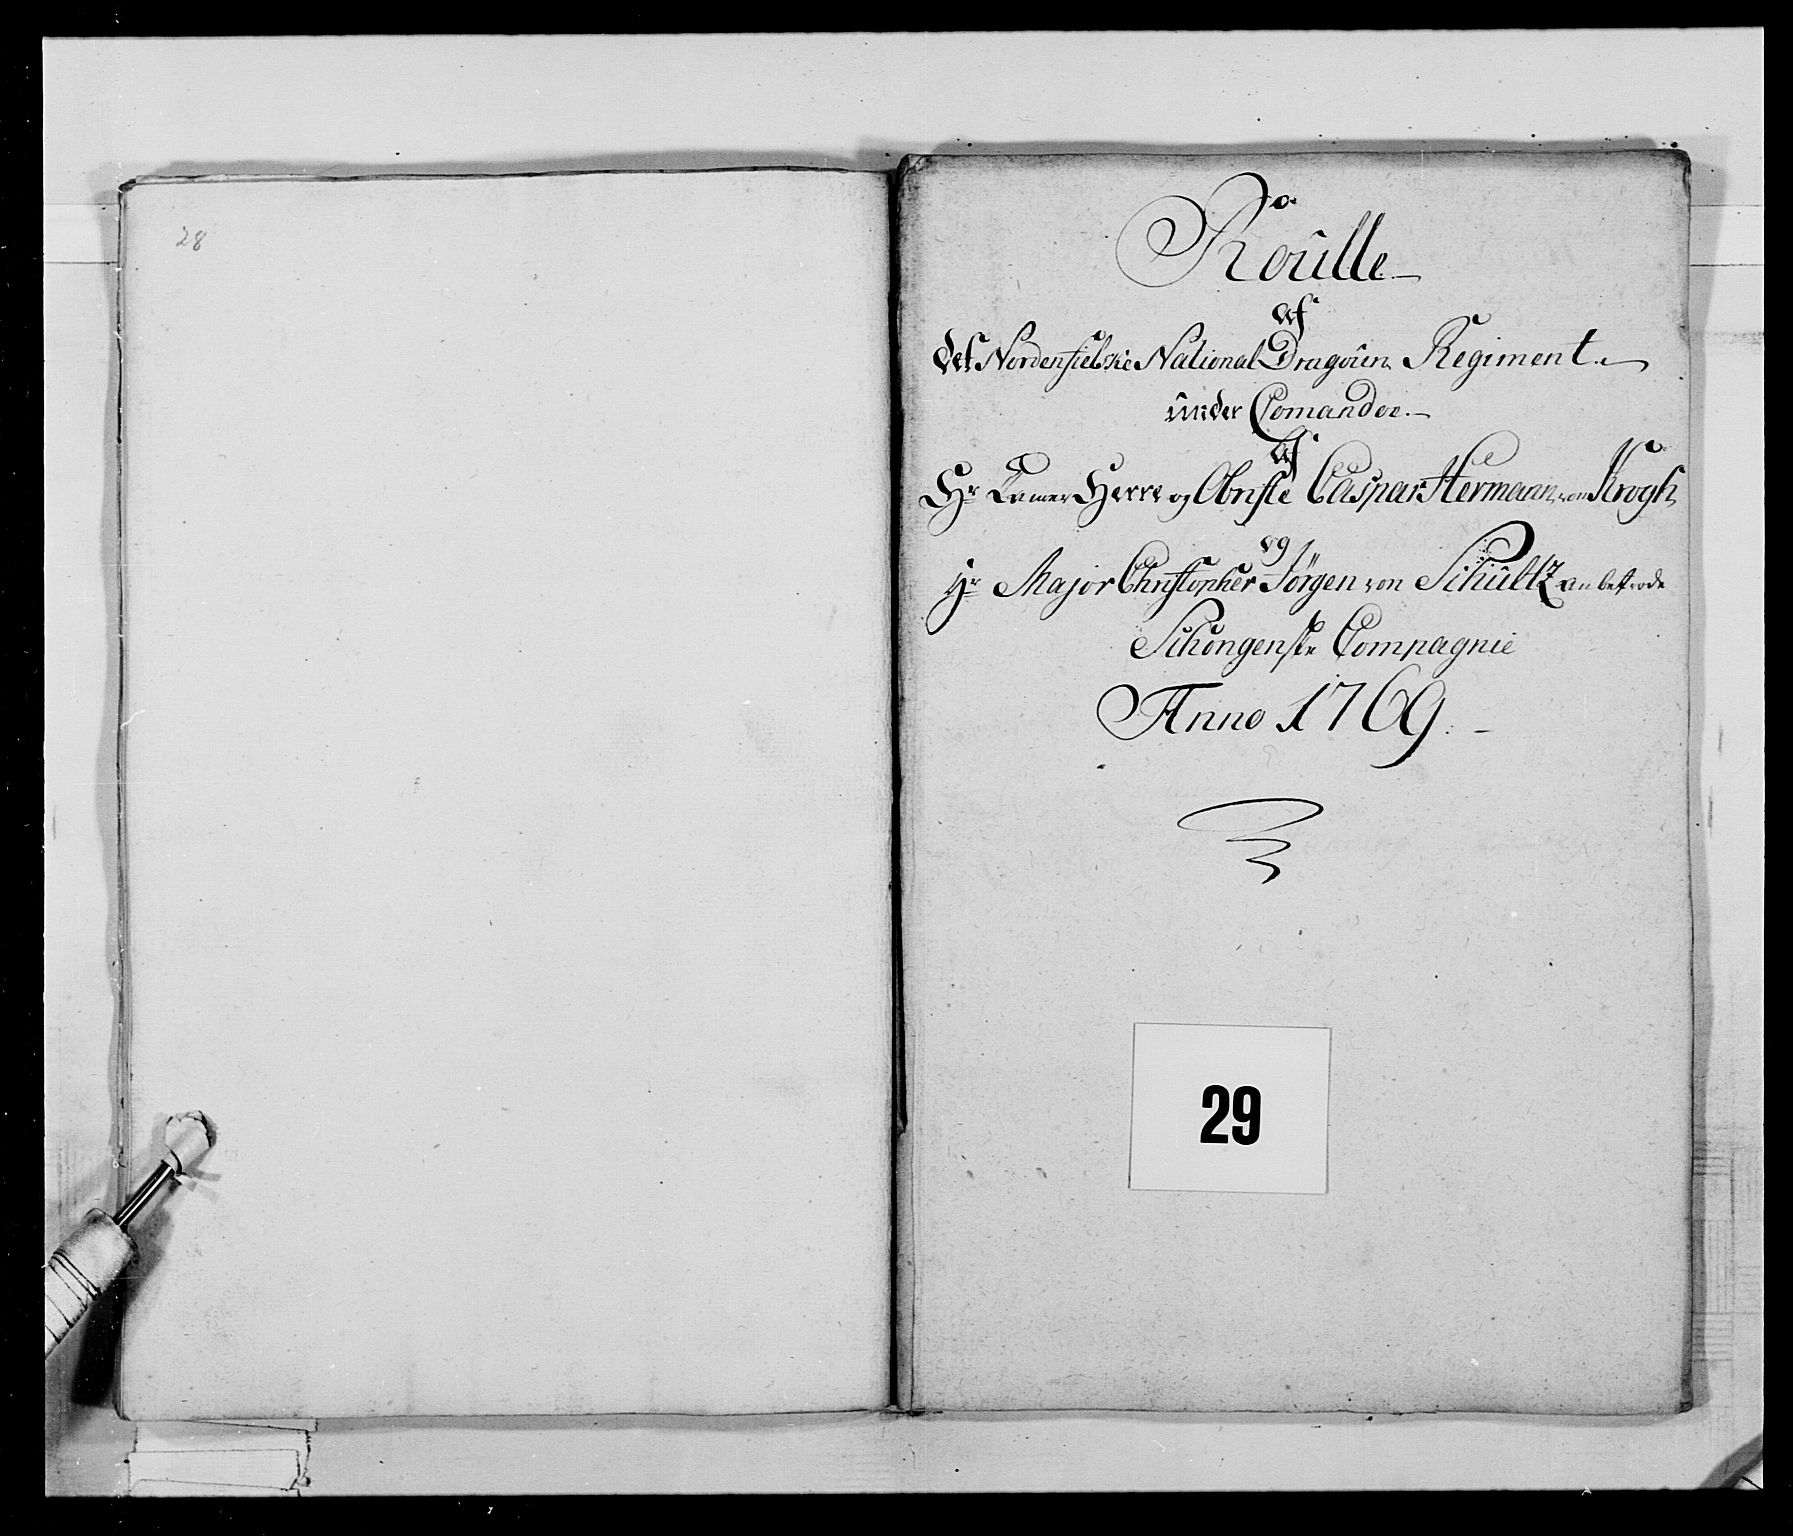 28
Roulle
af
det Nordenfielske National Dragoun Regiment
under Comandoe
af
Hr Camer Herre og Obriste Caspar Hermann von Krogh
og
Hr Major Christopher Jörgen von Schultz anbetrode
Schongenske Compagnie
Anno 1769
29